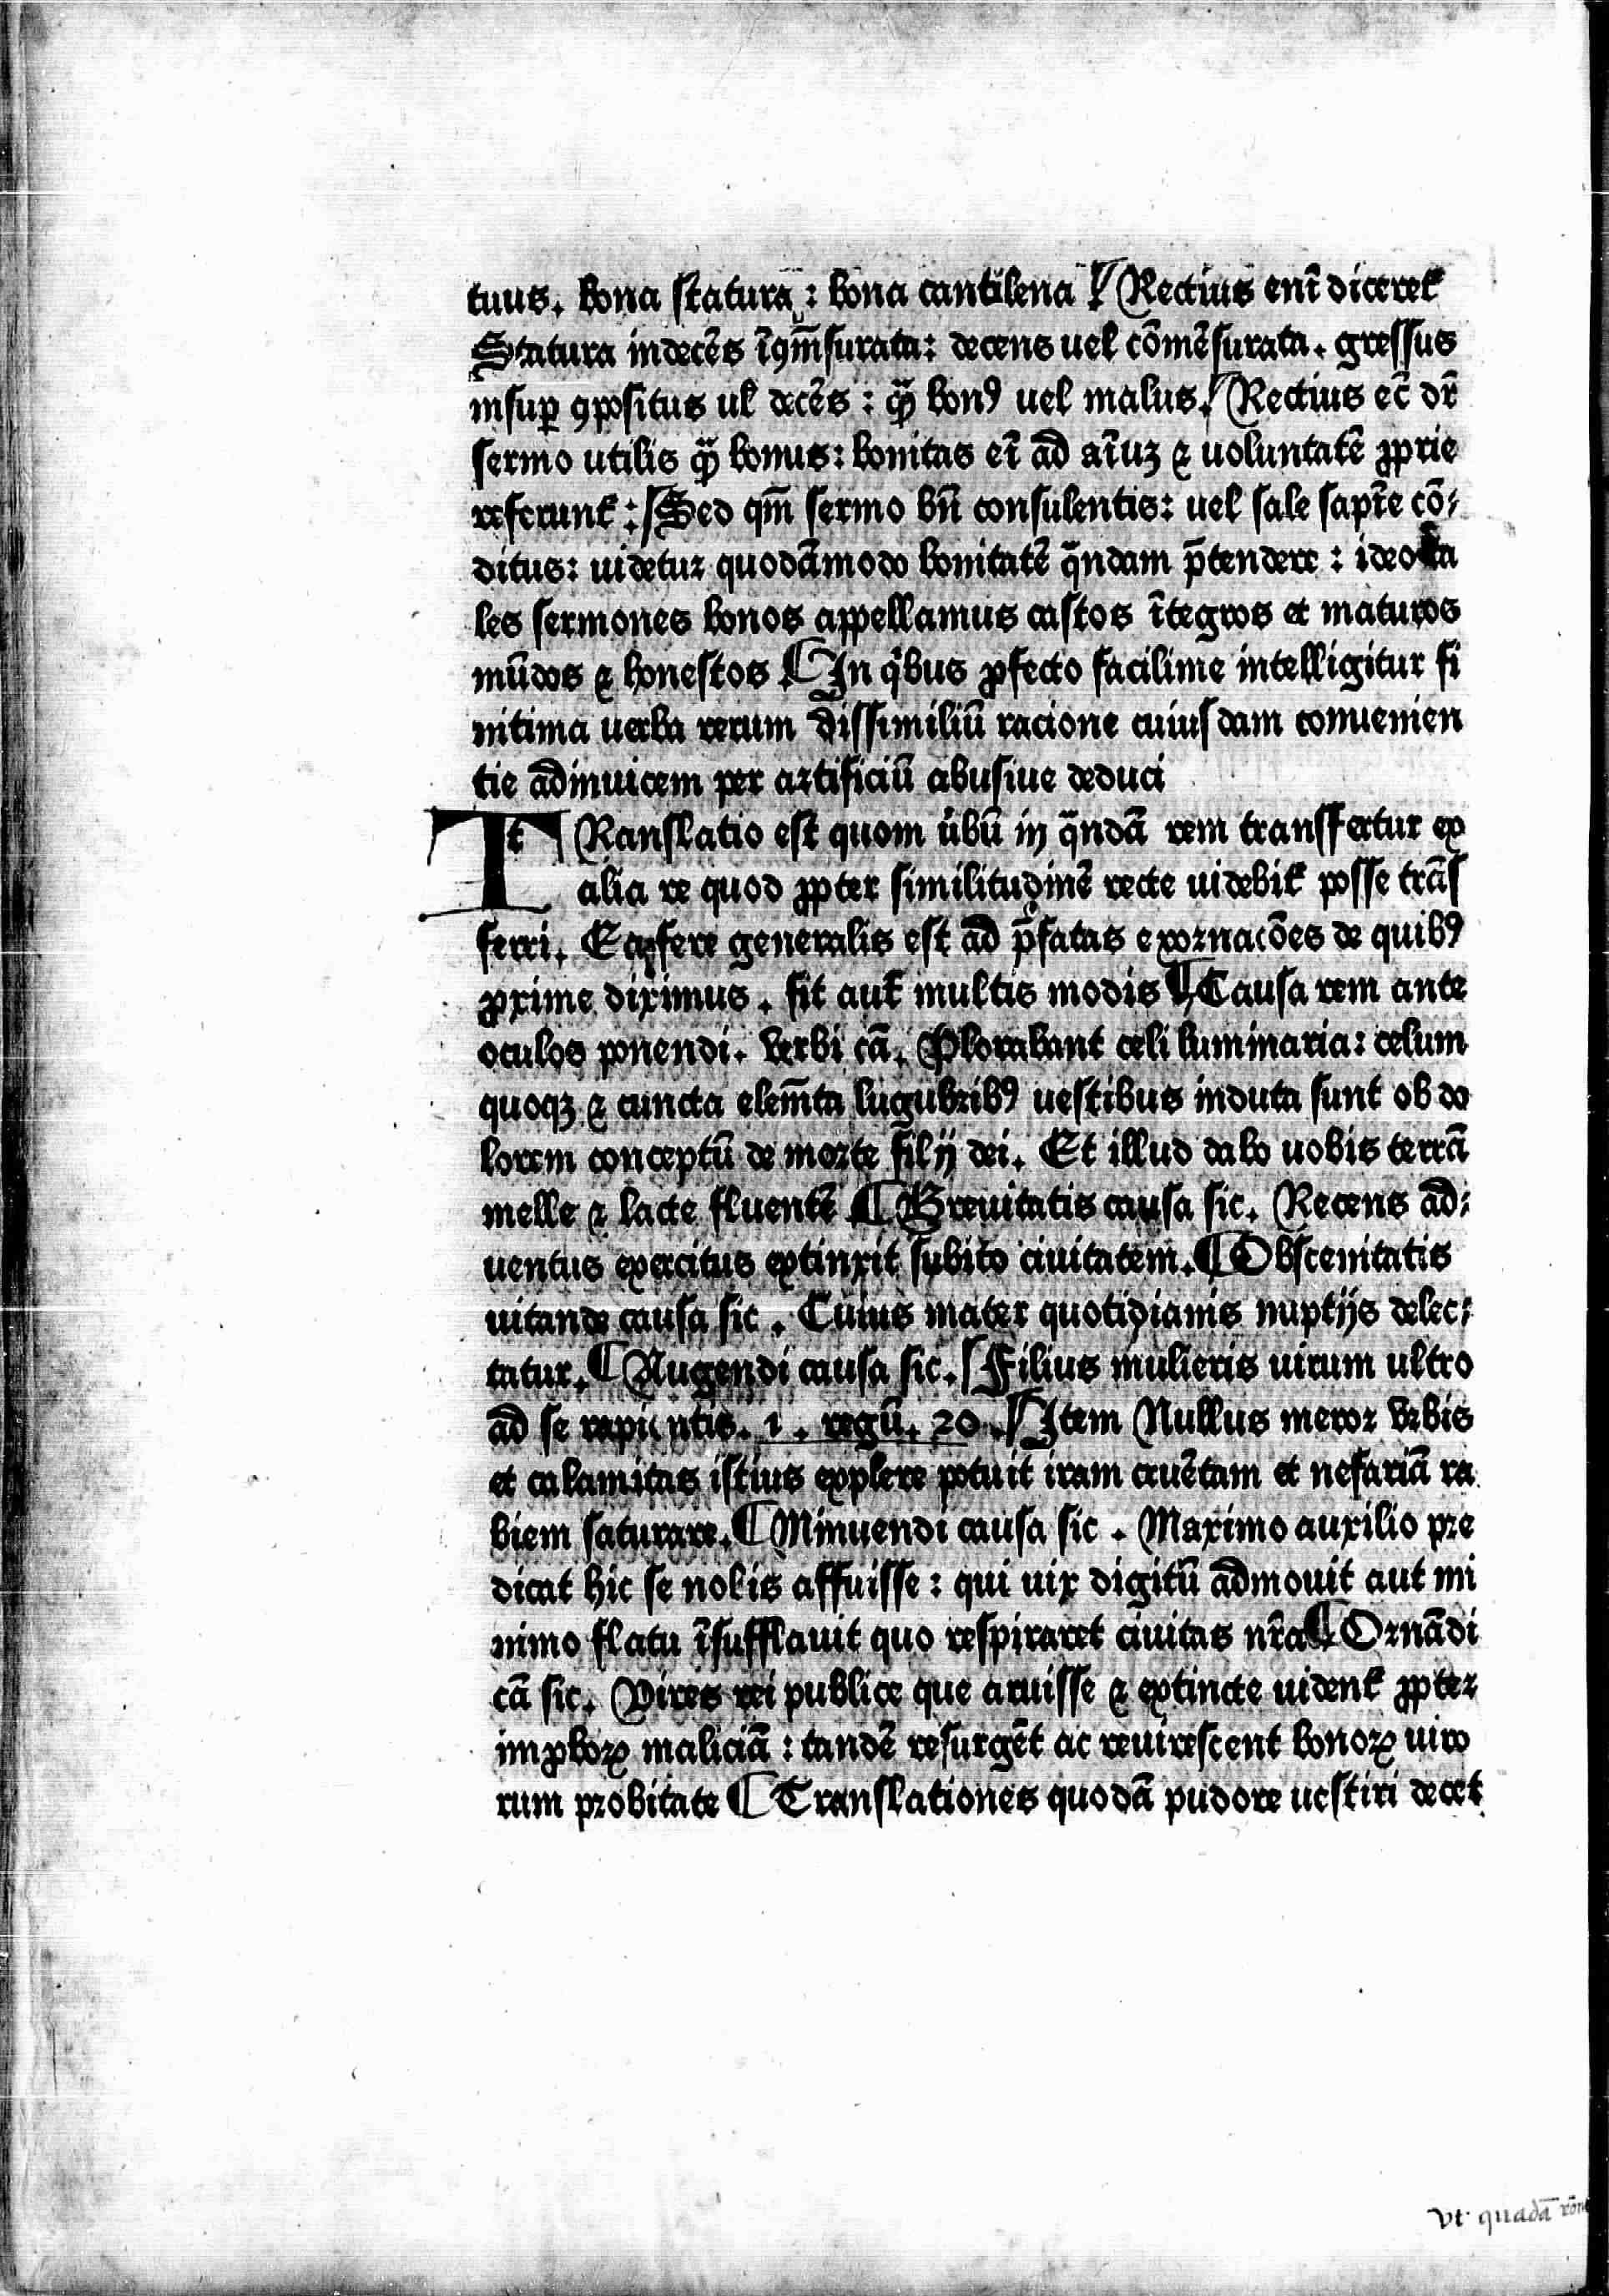 tuus. bona statura : bona cantilena ¶ Rectius enī diceret᷑
Statura indecēs īꝯm̄surata: decens uel cōmēsurata. gressus
insuꝑ ꝯpositus ul᷑ decēs : qꝫ̄ bonꝰ uel malus. Rectius ec̄ dr̄
sermo utilis qꝫ̄ bonus: bonitas eī ad aīuꝫ ⁊ uoluntatē ꝓprie
referunt᷑ : Sed qm̄ sermo bn̄ consulentis: uel sale sapīe cō⸗
ditus: uidetur quodāmodo bonitatē q̄ndam p̄tendere : ideo ta
les sermones bonos appellamus castos ītegros et maturos
mūdos ⁊ honestos ¶ In qͥbus ꝓfecto facilime intelligitur fi
nitima uerba rerum dissimiliū racione cuiusdam conuenien
tie adinuicem per artificiū abusiue deduci
TRanslatio est quom ūbū in q̄ndā rem transfertur ex
alia re quod ꝓpter similitudinē recte uidebit᷑ posse trās
ferri. Eaꝫ fere generalis est ad p̄fatas exornacōes de quibꝰ
ꝓxime diximus. fit aut᷑ multis modis ¶ Causa rem ante
oculos ponendi. Verbi cā. Plorabant celi luminaria: celum
quoqꝫ ⁊ cuncta elem̄ta lugubribꝰ uestibus induta sunt ob do
lorem conceptū de morte filij dei. Et illud dabo uobis terrā
melle ⁊ lacte fluentē ¶ Breuitatis causa sic. Recens ad⸗
uentus exercitus extinxit subito ciuitatem. ¶ Obscenitatis
uitande causa sic. Cuius mater quotidianis nuptijs delec⸗
tatur. ¶ Augendi causa sic. Filius mulieris uirum ultro
ad se rapientis. 1. regū. 20. Item Nullus meror Vrbis
et calamitas istius explere potuit iram cruētam et nefariā ra
biem saturare. ¶ Minuendi causa sic. Maximo auxilio pre
dicat hic se nobis affuisse : qui uix digitū admouit aut mi
nimo flatu īsufflauit quo respiraret ciuitas nr̄a ¶ Ornādi
cā sic. Vires rei publice que aruisse ⁊ extincte uident᷑ ꝓpter
imꝓboꝝ maliciā : tandē resurgēt ac reuirescent bonoꝝ uiro
rum probitate ¶ Translationes quodā pudore uestiri decet
vt quadā rōne